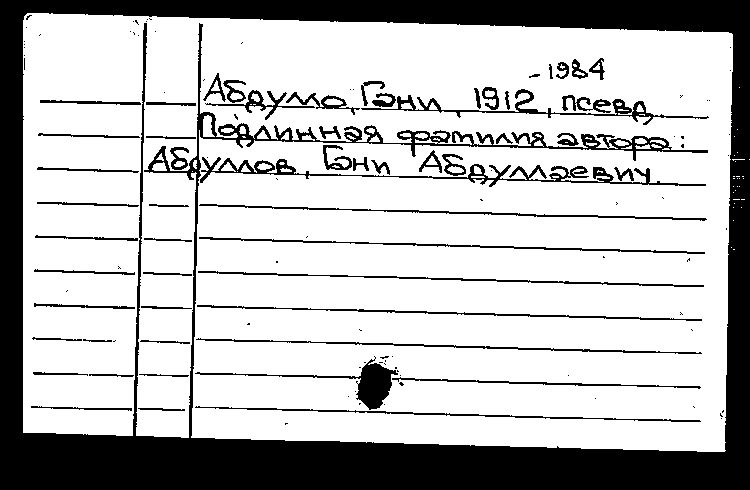 -1984
Абдулло, Гани, 1912, псевд.
Подлинная фамилия автора:
Абдуллов, Гани Абдуллаевич.